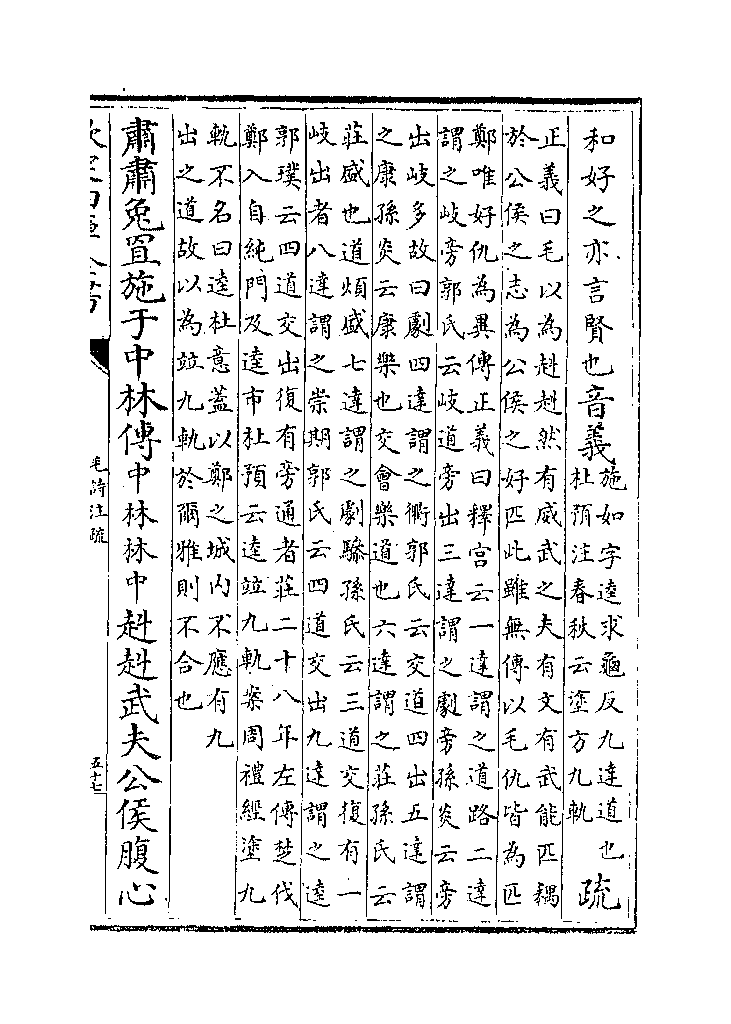 和好之亦言賢也音義施如字逵求龜反九達道也
杜預注春秋云塗方九軌疏
正義曰毛以為赳赳然有威武之夫有文有武能匹耦
於公侯之志為公侯之好匹此雖無傳以毛仇皆為匹
鄭唯好仇為異傳正義曰釋宫云一達謂之道路二達
謂之岐旁郭氏云岐道旁出三達謂之劇旁孫炎云旁
出岐多故曰劇四達謂之衢郭氏云交道四出五達謂
之康孫炎云康樂也交會樂道也六達謂之莊孫氏云
莊盛也道煩盛七達謂之劇驂孫氏云三道交復有一
岐出者八達謂之崇期郭氏云四道交出九達謂之逵
郭璞云四道交出復有旁通者莊二十八年左傳楚伐
鄭入自純門及逵市杜預云逵竝九軌案周禮經塗九
軌不名曰逵杜意蓋以鄭之城内不應有九
出之道故以為竝九軌於爾雅則不合也
肅肅兔罝施于中林傳中林林中赳赳武夫公侯腹心
毛詩注疏
五十七